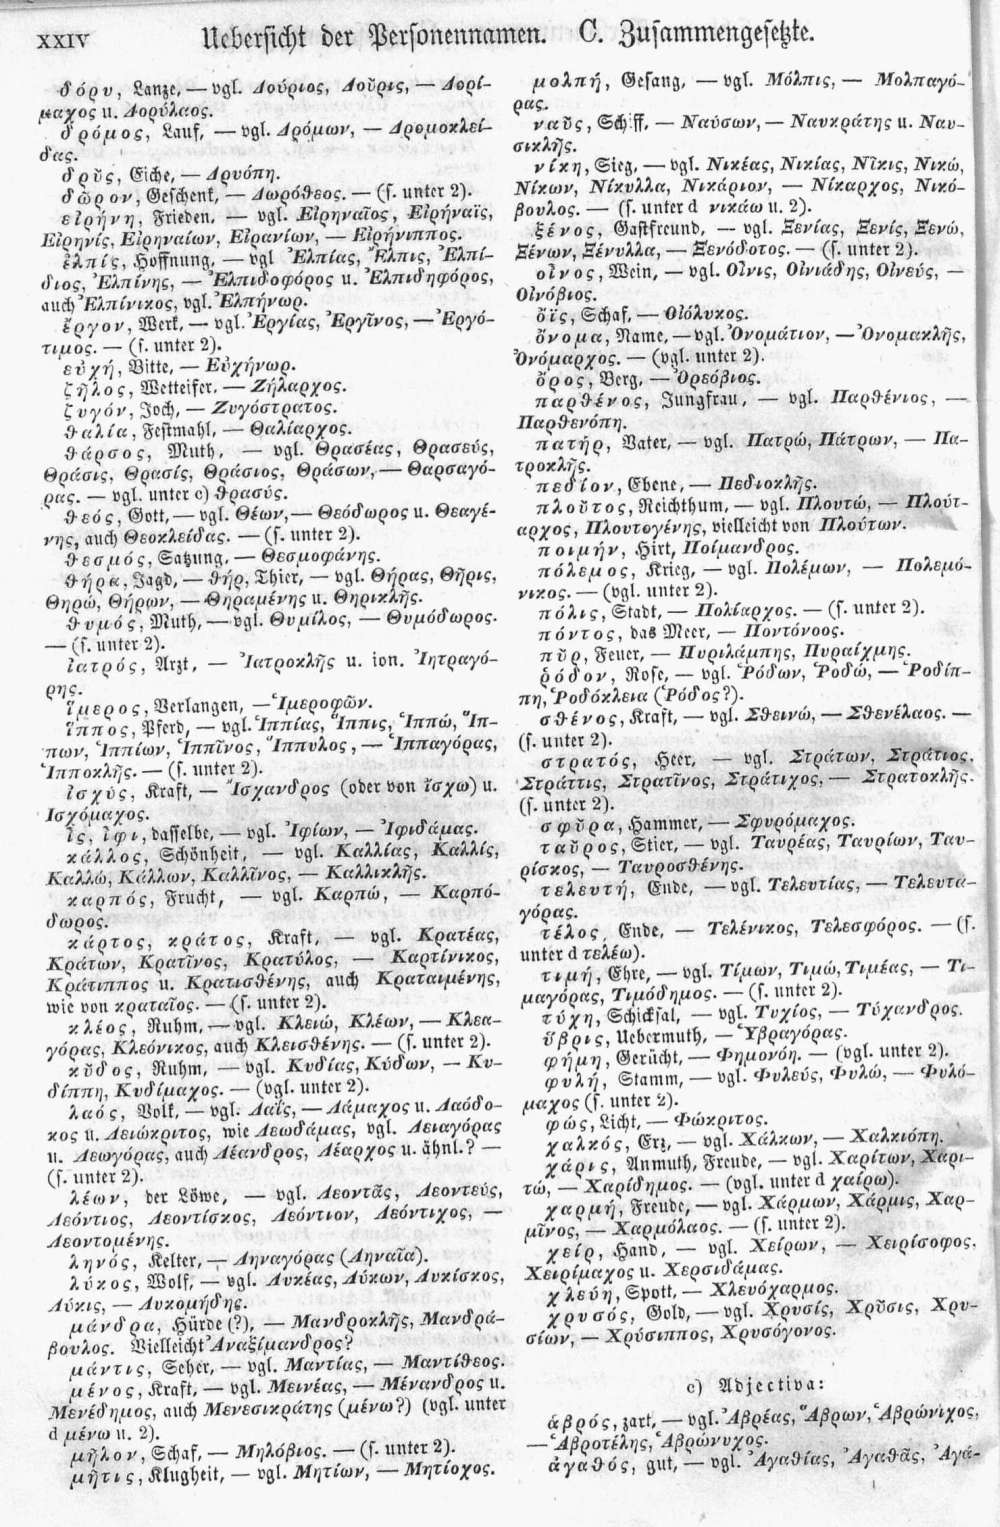 XXIV Uebersicht der Personennamen. C. Zusammengesetzte.
δόρυ, Lanze, — vgl. Δούριος, Δοῦρις, — Δορί-
μαχος u. Δορύλαος.
δρόμος, Lauf, — vgl. Δρόμων, — Δρομοκλεί-
δας.
δρῦς, Eiche, — Δρυόπη.
δῶρον, Geschenk, — Δωρόθεος. — (s. unter 2).
εἰρήνη, Frieden, — vgl. Εἰρηναῖος, Εἰρήναϊς,
Εἰρηνίς, Εἰρηναίων, Εἰρανίων, — Εἰρήνιππος.
ἐλπίς, Hoffnung, — vgl Ἐλπίας, Ἔλπις, Ἐλπί-
διος, Ἐλπίνης, — Ἐλπιδοφόρος u. Ἐλπιδηφόρος,
auch Ἐλπίνικος, vgl. Ἐλπήνωρ.
ἔργον, Werk, — vgl. Ἐργίας, Ἐργῖνος, — Ἐργό-
τιμος. — (s. unter 2).
εὐχή, Bitte, — Εὐχήνωρ.
ζῆλος, Wetteifer, — Ζήλαρχος.
ζυγόν, Joch, — Ζυγόστρατος.
θαλία, Festmahl, — Θαλίαρχος.
θάρσος, Muth, — vgl. Θρασέας, Θρασεύς,
Θράσις, Θρασίς, Θράσιος, Θράσων, — Θαρσαγό-
ρας. — vgl. unter c) θρασύς.
θεός, Gott, — vgl. Θέων, — Θεόδωρος u. Θεαγέ-
νης, auch Θεοκλείδας. — (s. unter 2).
θεσμός, Satzung, — Θεσμοφάνης.
θήρα, Jagd, — θήρ, Thier, — vgl. Θήρας, Θῆρις,
Θηρώ, Θήρων, — Θηραμένης u. Θηρικλῆς.
θυμός, Muth, — vgl. Θυμίλος, — Θυμόδωρος.
— (s. unter 2).
ἰατρός, Arzt, — Ἰατροκλῆς u. ion. Ἰητραγό-
ρης.
ἵμερος, Verlangen, — Ἱμεροφῶν.
ἵππος, Pferd, — vgl. Ἱππίας, Ἵππις, Ἱππώ, Ἵπ-
πων, Ἱππίων, Ἱππῖνος, Ἵππυλος, — Ἱππαγόρας,
Ἱπποκλῆς. — (s. unter 2).
ἰσχύς, Kraft, — Ἴσχανδρος (oder von ἴσχω) u.
Ἰσχόμαχος.
ἴς, ἶφι, dasselbe, — vgl. Ἰφίων, — Ἰφιδάμας.
κάλλος, Schönheit, — vgl. Καλλίας, Καλλίς,
Καλλώ, Κάλλων, Καλλῖνος, — Καλλικλῆς.
καρπός, Frucht, — vgl. Καρπώ, — Καρπό-
δωρος.
κάρτος, κράτος, Kraft, — vgl. Κρατέας,
Κράτων, Κρατῖνος, Κρατύλος, — Καρτίνικος,
Κράτιππος u. Κρατισθένης, auch Κραταιμένης,
wie von κραταῖος. — (s. unter 2).
κλέος, Ruhm, — vgl. Κλειώ, Κλέων, — Κλεα-
γόρας, Κλεόνικος, auch Κλεισθένης. — (s. unter 2).
κῦδος, Ruhm, — vgl. Κυδίας, Κύδων, — Κυ-
δίππη, Κυδίμαχος. — (vgl. unter 2).
λαός, Volk, — vgl. Λαΐς, — Λάμαχος u. Λαόδο-
κος u. Λειώκριτος, wie Λεωδάμας, vgl. Λειαγόρας
u. Λεωγόρας, auch Λέανδρος, Λέαρχος u. ähnl.? —
(s. unter 2).
λέων, der Löwe, — vgl. Λεοντᾶς, Λεοντεύς,
Λεόντιος, Λεοντίσκος, Λεόντιον, Λεόντιχος, —
Λεοντομένης.
ληνός, Kelter, — Ληναγόρας (Ληναῖα).
λύκος, Wolf, — vgl. Λυκέας, Λύκων, Λυκίσκος,
Λύκις, — Λυκομήδης.
μάνδρα, Hürde (?), — Μανδροκλῆς, Μανδρά-
βουλος. Vielleicht Ἀναξίμανδρος?
μάντις, Seher, — vgl. Μαντίας, — Μαντίθεος.
μένος, Kraft, — vgl. Μεινέας, — Μένανδρος u.
Μενέδημος, auch Μενεσικράτης (μένω?) (vgl. unter
d μένω u. 2).
μῆλον, Schaf, — Μηλόβιος. — (s. unter 2).
μῆτις, Klugheit, — vgl. Μητίων, — Μητίοχος.
μολπή, Gesang, — vgl. Μόλπις, — Μολπαγό-
ρας.
ναῦς, Schiff, — Ναύσων, — Ναυκράτης u. Ναυ-
σικλῆς.
νίκη, Sieg, — vgl. Νικέας, Νικίας, Νῖκις, Νικώ,
Νίκων, Νίκυλλα, Νικάριον, — Νίκαρχος, Νικό-
βουλος. — (s. unter d νικάω u. 2).
ξένος, Gastfreund, — vgl. Ξενίας, Ξενίς, Ξενώ,
Ξένων, Ξένυλλα, — Ξενόδοτος. — (s. unter 2).
οἶνος, Wein, — vgl. Οἶνις, Οἰνιάδης, Οἰνεύς, —
Οἰνόβιος.
ὄϊς, Schaf, — Οἰόλυκος.
ὄνομα, Name, — vgl. Ὀνομάτιον, — Ὀνομακλῆς,
Ὀνόμαρχος. — (vgl. unter 2).
ὄρος, Berg, — Ὀρεόβιος.
παρθένος, Jungfrau, — vgl. Παρθένιος, —
Παρθενόπη.
πατήρ, Vater, — vgl. Πατρώ, Πάτρων, — Πα-
τροκλῆς.
πεδίον, Ebene, — Πεδιοκλῆς.
πλοῦτος, Reichthum, — vgl. Πλουτώ, — Πλούτ-
αρχος, Πλουτογένης, vielleicht von Πλούτων.
ποιμήν, Hirt, Ποίμανδρος.
πόλεμος, Krieg, — vgl. Πολέμων, — Πολεμό-
νικος. — (vgl. unter 2).
πόλις, Stadt, — Πολίαρχος. — (s. unter 2).
πόντος, das Meer, — Ποντόνοος.
πῦρ, Feuer, — Πυριλάμπης, Πυραίχμης.
ῥόδον, Rose, — vgl. Ῥόδων, Ῥοδώ, — Ῥοδίπ-
πη, Ῥοδόκλεια (Ῥόδος?).
σθένος, Kraft, — vgl. Σθεινώ, — Σθενέλαος. —
(s. unter 2).
στρατός, Heer, — vgl. Στράτων, Στράτιος,
Στράττις, Στρατῖνος, Στράτιχος, — Στρατοκλῆς.
(s. unter 2).
σφῦρα, Hammer, — Σφυρόμαχος.
ταῦρος, Stier, — vgl. Ταυρέας, Ταυρίων, Ταυ-
ρίσκος, — Ταυροσθένης.
τελευτή, Ende, — vgl. Τελευτίας, — Τελευτα-
γόρας.
τέλος, Ende, — Τελένικος, Τελεσφόρος. — (s.
unter d τελέω).
τιμή, Ehre, — vgl. Τίμων, Τιμώ, Τιμέας, — Τι-
μαγόρας, Τιμόδημος. — (s. unter 2).
τύχη, Schicksal, — vgl. Τυχίος, — Τύχανδρος.
ὕβρις, Uebermuth, — Ὑβραγόρας.
φήμη, Gerücht, — Φημονόη. — (vgl. unter 2).
φυλή, Stamm, — vgl. Φυλεύς, Φυλώ, — Φυλό-
μαχος (s. unter 2).
φῶς, Licht, — Φώκριτος.
χαλκός, Erz, — vgl. Χάλκων, — Χαλκιόπη.
χάρις, Anmuth, Freude, — vgl. Χαρίτων, Χαρι-
τώ, — Χαρίδημος. — (vgl. unter d χαίρω).
χαρμή, Freude, — vgl. Χάρμων, Χάρμις, Χαρ-
μῖνος, — Χαρμόλαος. — (s. unter 2).
χείρ, Hand, — vgl. Χείρων, — Χειρίσοφος,
Χειρίμαχος u. Χερσιδάμας.
χλεύη, Spott, — Χλευόχαρμος.
χρυσός, Gold, — vgl. Χρυσίς, Χρῦσις, Χρυ-
σίων, — Χρύσιππος, Χρυσόγονος.
c) Adjectiva:
ἁβρός, zart, — vgl. Ἁβρέας, Ἅβρων, Ἁβρώνιχος,
— Ἁβροτέλης, Ἁβρώνυχος.
ἀγαθός, gut, — vgl. Ἀγαθίας, Ἀγαθᾶς, Ἀγά-